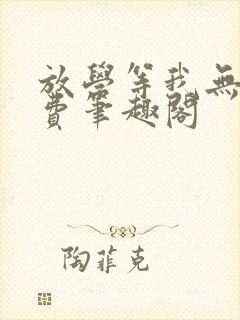 放學等我無
費筆趣閣
陶菲克